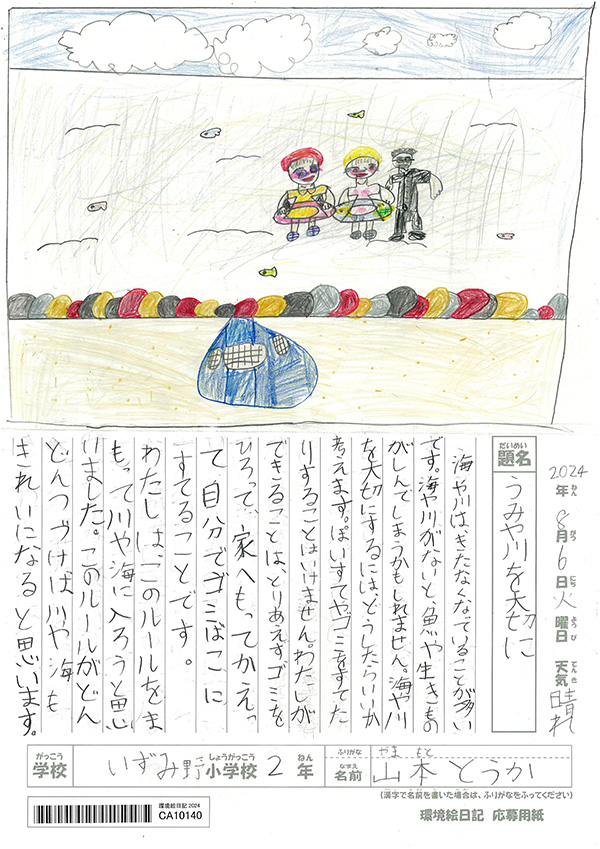 2024年 8月 6日 火曜日 天気 晴れ
ねん がつ にち ようび てんき
だいめい
題名 うみや川を大切に
海や川は、きたなくなっていることが多い
です。海や川がないと、魚や生きもの
がしんでしまうかもしれません。海や川
を大切にするにはどうしたらいいか
考えます。ぽいすてやゴミをすてた
りすることはいけません。わたしが
できることは、とりあえずゴミを
ひろって、家へもってかえっ
て自分でゴミばこに
すてることです。
わたしは、このルールをま
もって川や海に入ろうと思
いました。このルールがどん
どんつづけば川や海も
きれいになると思います。
がっこう しょうがっこう ねん ふりがな やま もと
学校 いずみ野小学校 2年 なまえ 名前 山本とうか
(漢字で名前を書いた場合は、ふりがなをふってください)
環境絵日記 2024
CA10140
環境絵日記 応募用紙